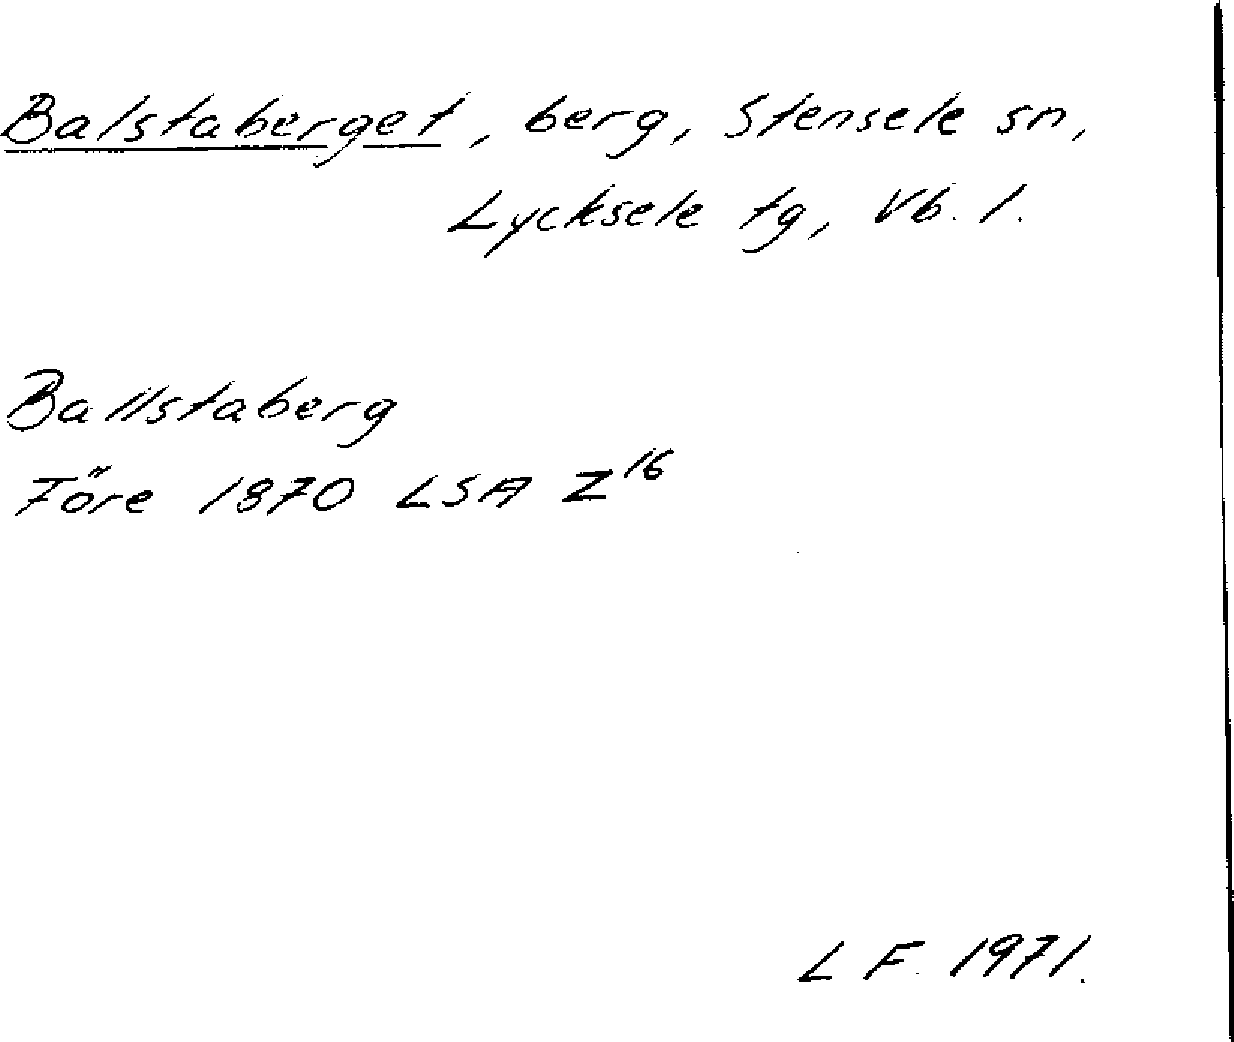 Balstaberget, berg, Stensele sn,
Lycksele tg, Vb. l.
Ballstaberg
Före 1870 LSA Z16
L F. 1971.